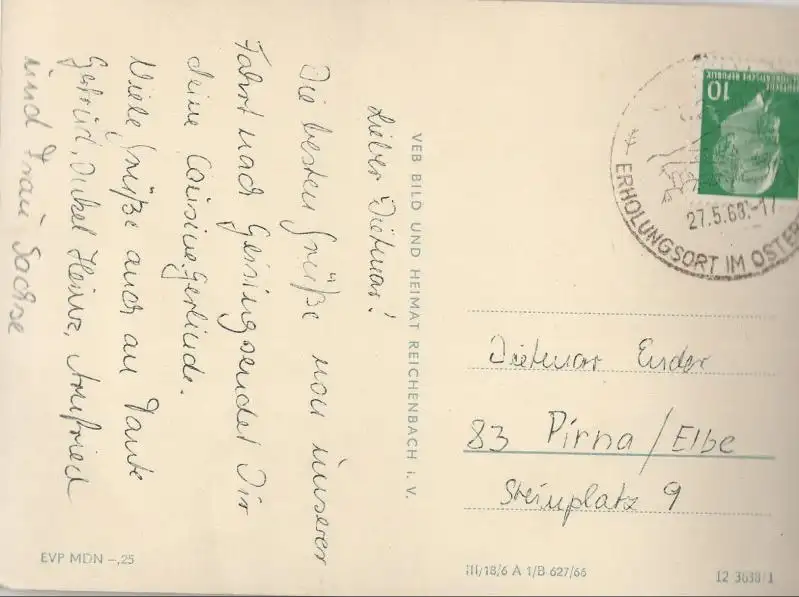 Lieber Dietmar!
Die besten Grüße von unserer
Fahrt nach Geising sendet Dir
deine Cousine Gerlinde.
Viele Grüße auch an Tante
Gertrud, Onkel Heinz, Manfried
und Frau Sachse
VEB BILD UND HEIMAT REICHENBACH i. V.
10
DEUTSCHE
DEMOKRATISCHE REPUBLIK
27.5.68.-17
ERHOLUNGSORT IM OSTER
Dietmar Ender
83 Pirna/Elbe
Steinplatz 9
EVP MDN -,25
III/18/6 A 1/B 627/66
12 3638/1